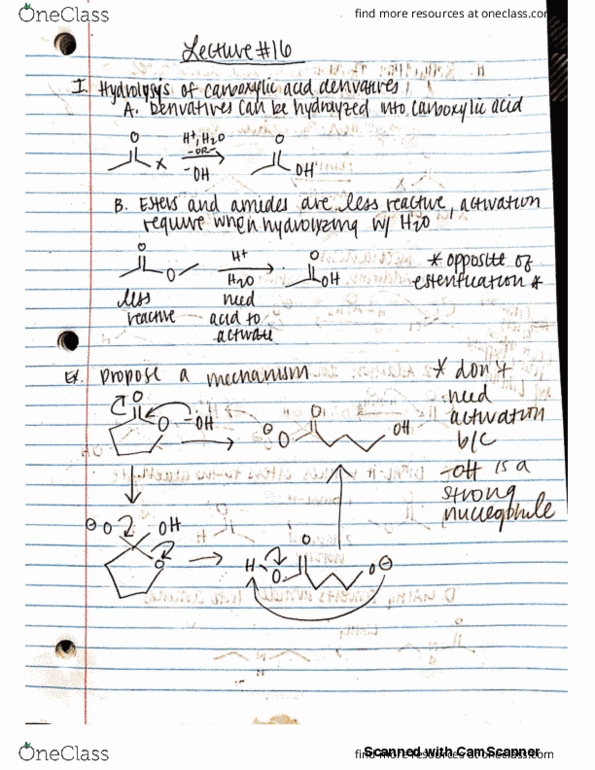 OneClass
find more resources at oneclass.com
Lecture #16
I. Hydrolysis of carboxylic acid derivatives
A. Derivatives can be hydrolyzed into carboxylic acid
O H+, H2O O
-OR-
X -OH OH
B. Esters and amides are less reactive, activation
require when hydrolyzing w/ H2O
O H+ O
O H2O OH
* opposite of
esterification *
less need
reactive acid to
activate
Ex. Propose a mechanism
* don't
need
activation
b/c
-OH is a
strong
nucleophile
O O
O -OH ⊖O OH
⊖O OH O
O H O O⊖
OneClass
find more resources at oneclass.com
Scanned with CamScanner